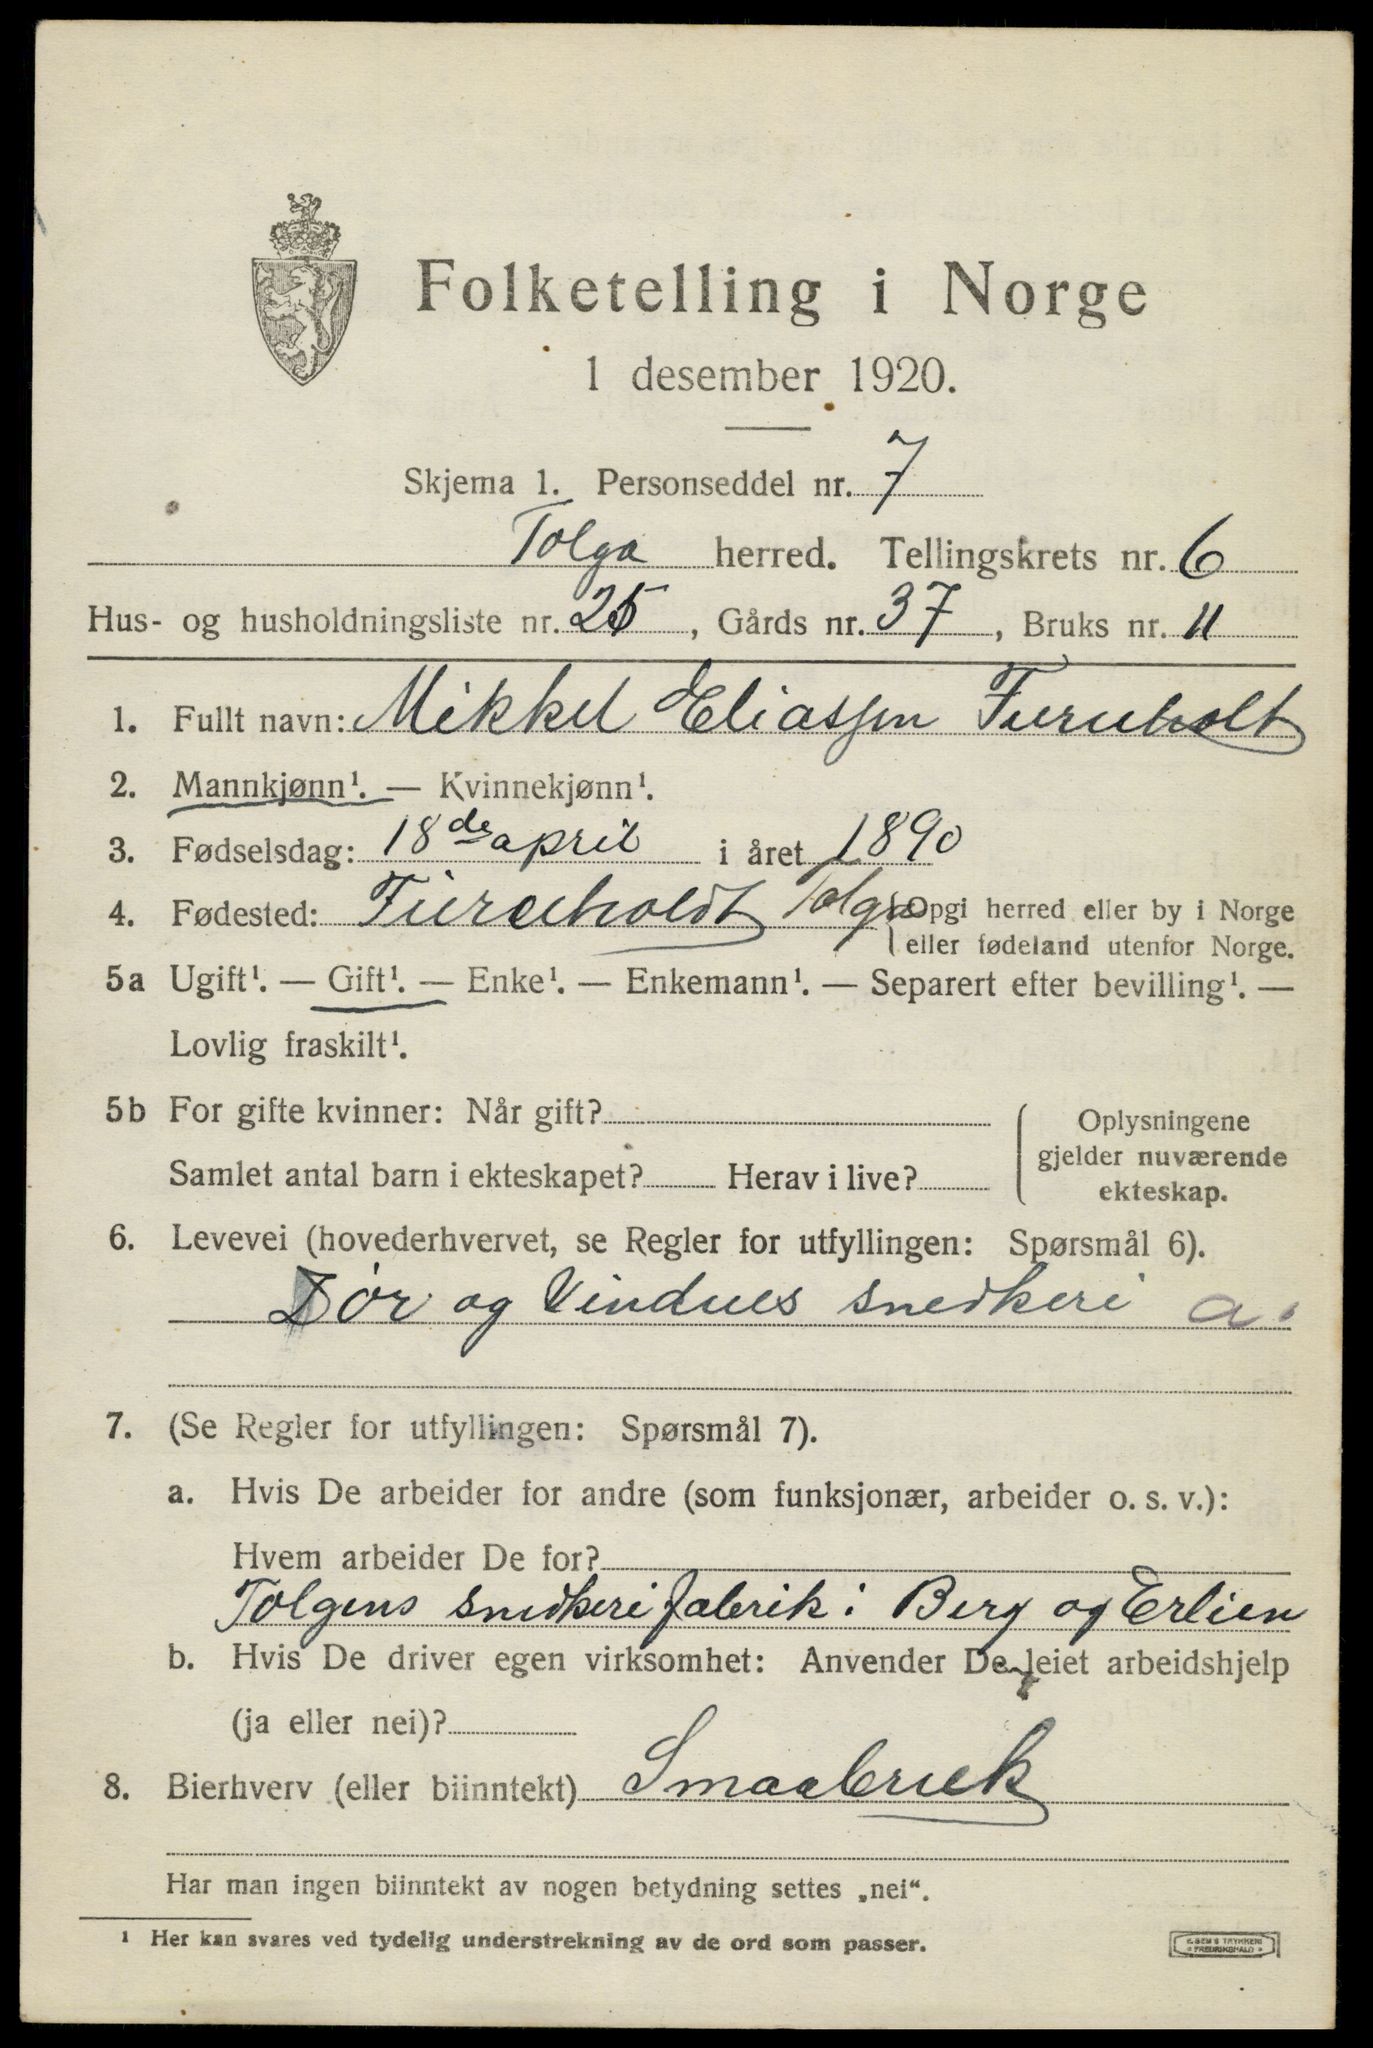 Folketelling i Norge
1 desember 1920.
Skjema 1. Personseddel nr. 7
Tolga herred. Tellingskrets nr. 6
Hus- og husholdningsliste nr. 25, Gårds nr. 37, Bruks nr. 11
1. Fullt navn: Mikkel Eliassen Furuholt
2. Mannkjønn¹. — Kvinnekjønn¹.
3. Fødselsdag: 18de april i året 1890
4. Fødested: Furuholdt Tolga {Opgi herred eller by i Norge
eller fødeland utenfor Norge.
5a Ugift¹. — Gift¹. — Enke¹. — Enkemann¹. — Separert efter bevilling¹. —
Lovlig fraskilt¹.
5b For gifte kvinner: Når gift?
Samlet antal barn i ekteskapet? Herav i live?
Oplysningene
gjelder nuværende
ekteskap.
6. Levevei (hovederhvervet, se Regler for utfyllingen: Spørsmål 6).
Dör og Vindues snedkeri a.
7. (Se Regler for utfyllingen: Spørsmål 7).
a. Hvis De arbeider for andre (som funksjonær, arbeider o. s. v.):
Hvem arbeider De for?
Tolgens snedkerifabrik: Berg og Erlien
b. Hvis De driver egen virksomhet: Anvender De leiet arbeidshjelp
(ja eller nei)?
8. Bierhverv (eller biinntekt) Smaabruk
Har man ingen biinntekt av nogen betydning settes „nei“.
¹ Her kan svares ved tydelig understrekning av de ord som passer.
E. SEM'S TRYKKERI
FREDRIKSHALD